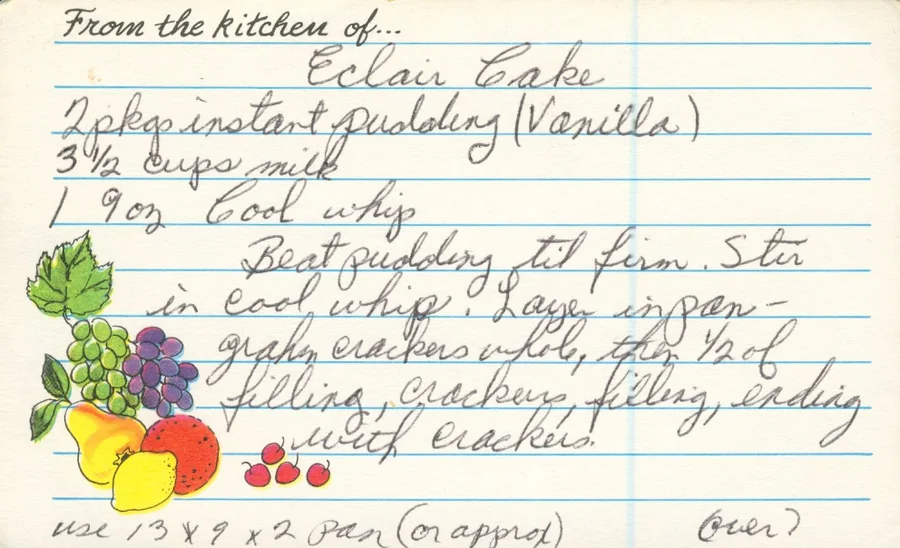 From the kitchen of...
Eclair Cake
2 pkgs instant pudding (Vanilla)
3 1/2 cups milk
1 9 oz Cool whip
Beat pudding til firm. Stir
in cool whip. Layer in pan -
grahm crackers whole, then 1/2 of
filling, crackers, filling, ending
with crackers.
use 13 x 9 x 2 pan (or approx) (over)